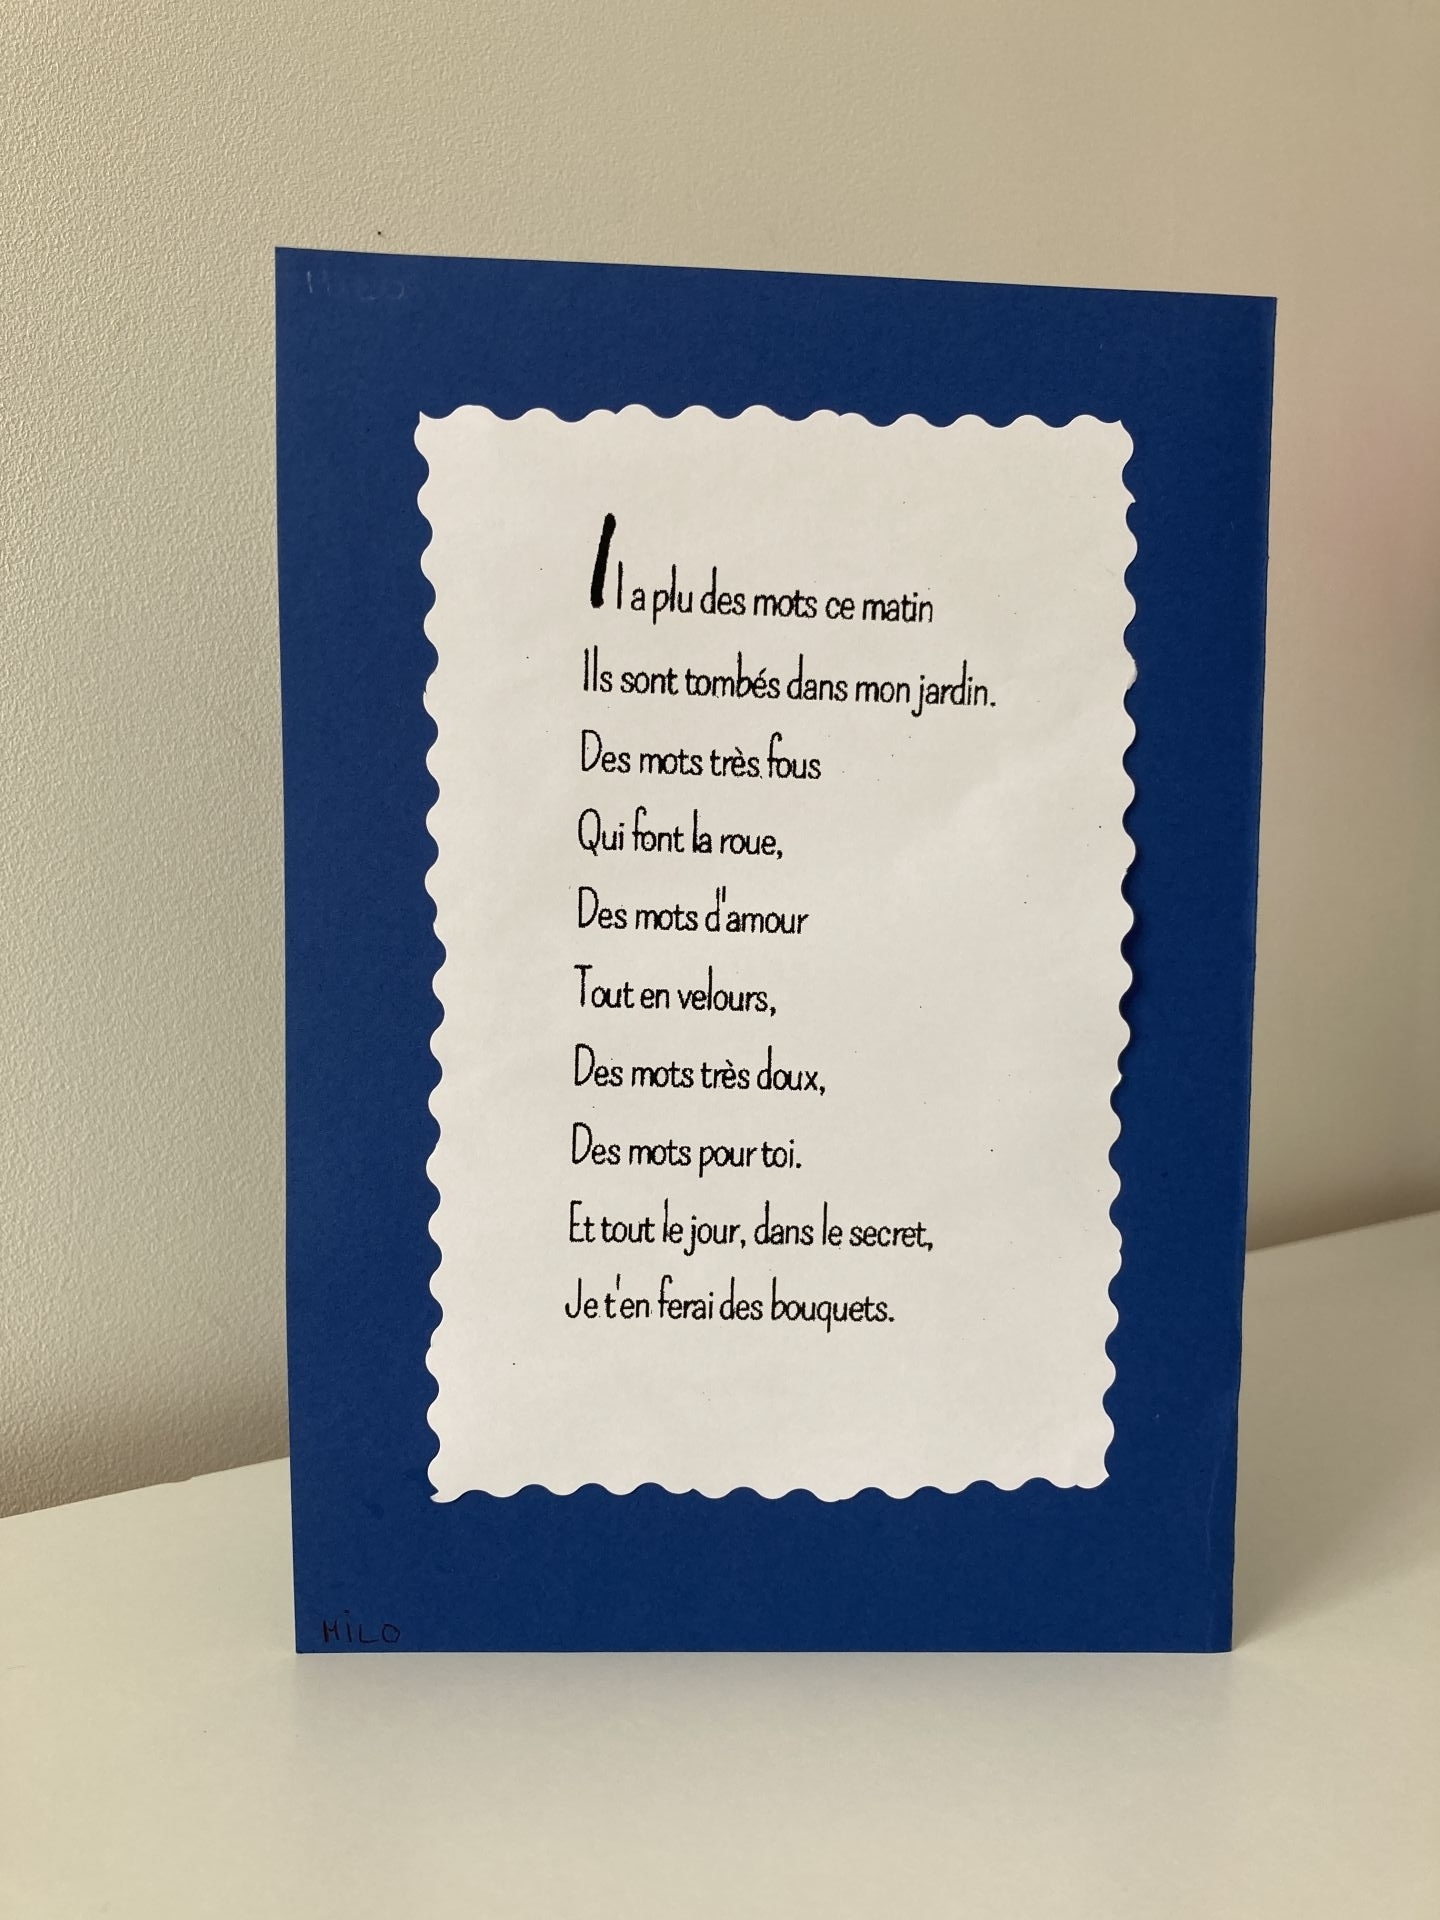 Il a plu des mots ce matin
Ils sont tombés dans mon jardin.
Des mots très fous
Qui font la roue,
Des mots d'amour
Tout en velours,
Des mots très doux,
Des mots pour toi.
Et tout le jour, dans le secret,
Je t'en ferai des bouquets.
MiLO